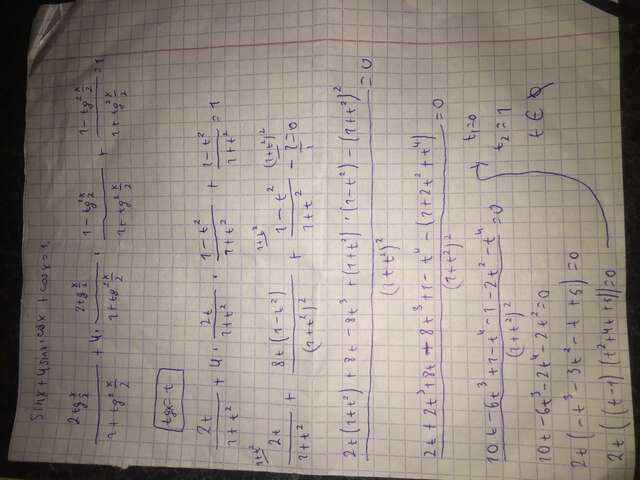 sinx+4sinx·cosx+cosx=1
2tg x/2 / 1+tg² x/2 + 4· 2tg x/2 / 1+tg² x/2 · 1-tg² x/2 / 1+tg² x/2 + 1-tg² x/2 / 1+tg² x/2 = 1
tgx=t
2t / 1+t² + 4· 2t / 1+t² · 1-t² / 1+t² + 1-t² / 1+t² = 1
2t / 1+t² + 8t(1-t²) / (1+t²)² + 1-t² / 1+t² - 1 / 1 = 0
2t(1+t²)+8t-8t³+(1+t²)·(1-t²)-(1+t²)² / (1+t²)² = 0
2t+2t³+8t-8t³+1-t⁴-(1+2t²+t⁴) / (1+t²)² = 0
10t-6t³+1-t⁴-1-2t²-t⁴ / (1+t²)² = 0
10t-6t³-2t⁴-2t²=0
2t(-t³-3t²-t+5)=0
2t((t-1)(t²+4t+5))=0
t₁=0
t₂=1
t∈∅